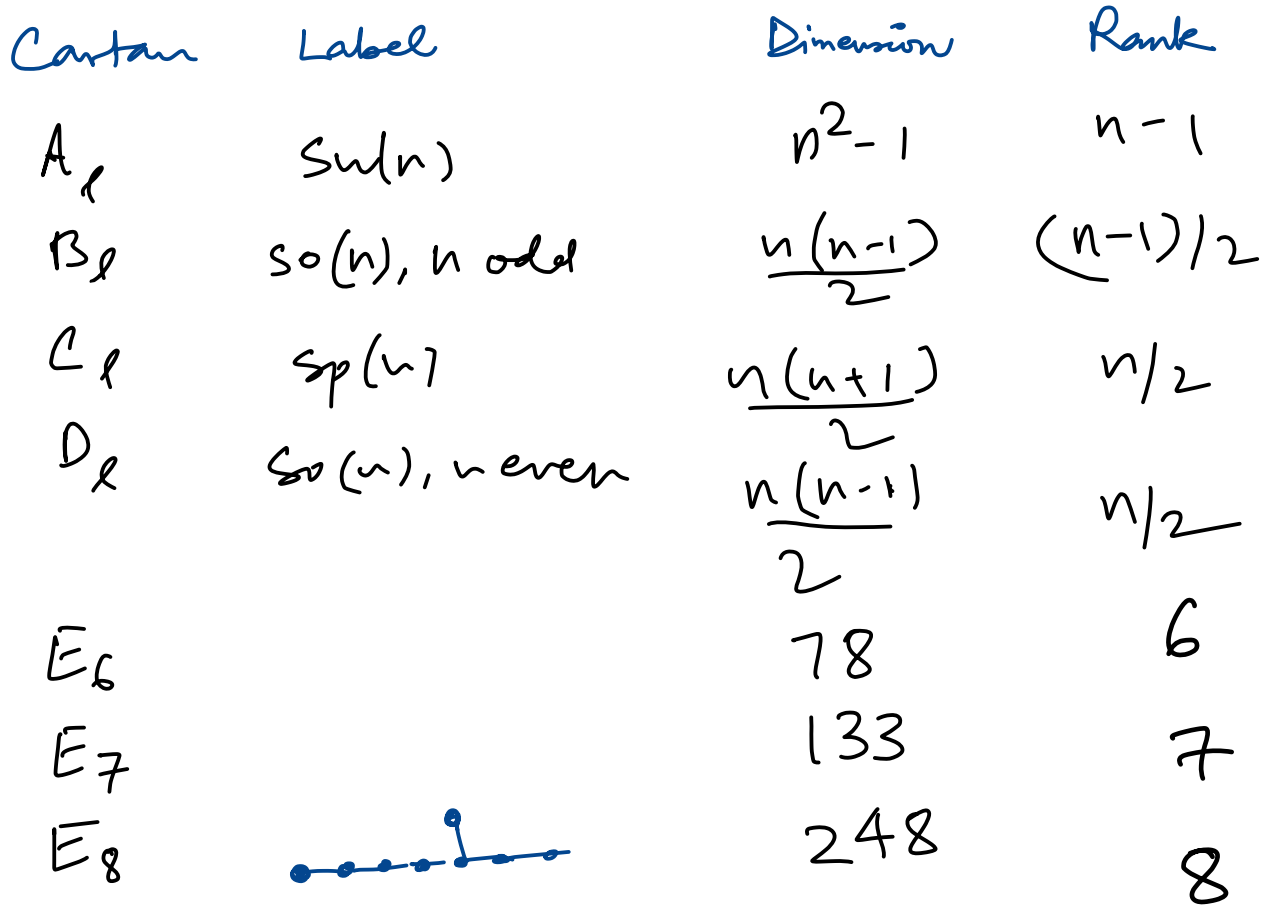 Cartan Label Dimension Rank
A_ℓ su(n) n²-1 n-1
B_ℓ so(n), n odd n(n-1)/2 (n-1)/2
C_ℓ sp(n) n(n+1)/2 n/2
D_ℓ so(n), n even n(n-1)/2 n/2
E₆ 78 6
E₇ 133 7
E₈ 248 8